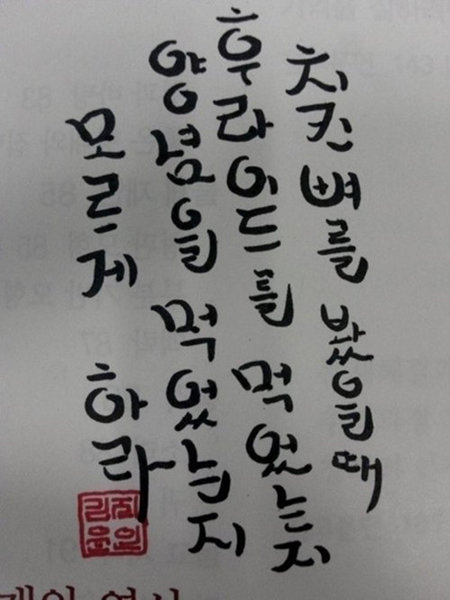 치킨 뼈를 봤을 때
후라이드를 먹었는지
양념을 먹었는지
모르게 하라